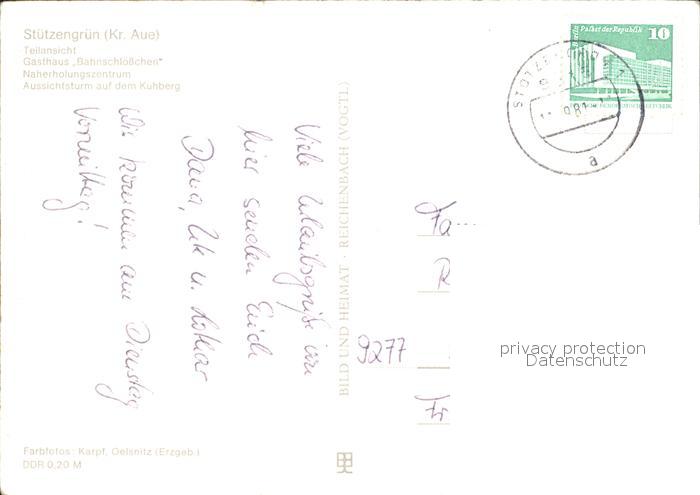 Stützengrün (Kr. Aue)
Teilansicht
Gasthaus „Bahnschlößchen"
Naherholungszentrum
Aussichtsturm auf dem Kuhberg
Viele Urlaubsgrüße von
hier senden Euch
Dana, Ute u. Lothar
Wir kommen am Dienstag
Vormittag!
BILD UND HEIMAT · REICHENBACH (VOGTL)
Palast der Republik
10
a
Fa
R
9277
Fr
privacy protection
Datenschutz
Farbfotos: Karpf, Oelsnitz (Erzgeb.)
DDR 0,20 M